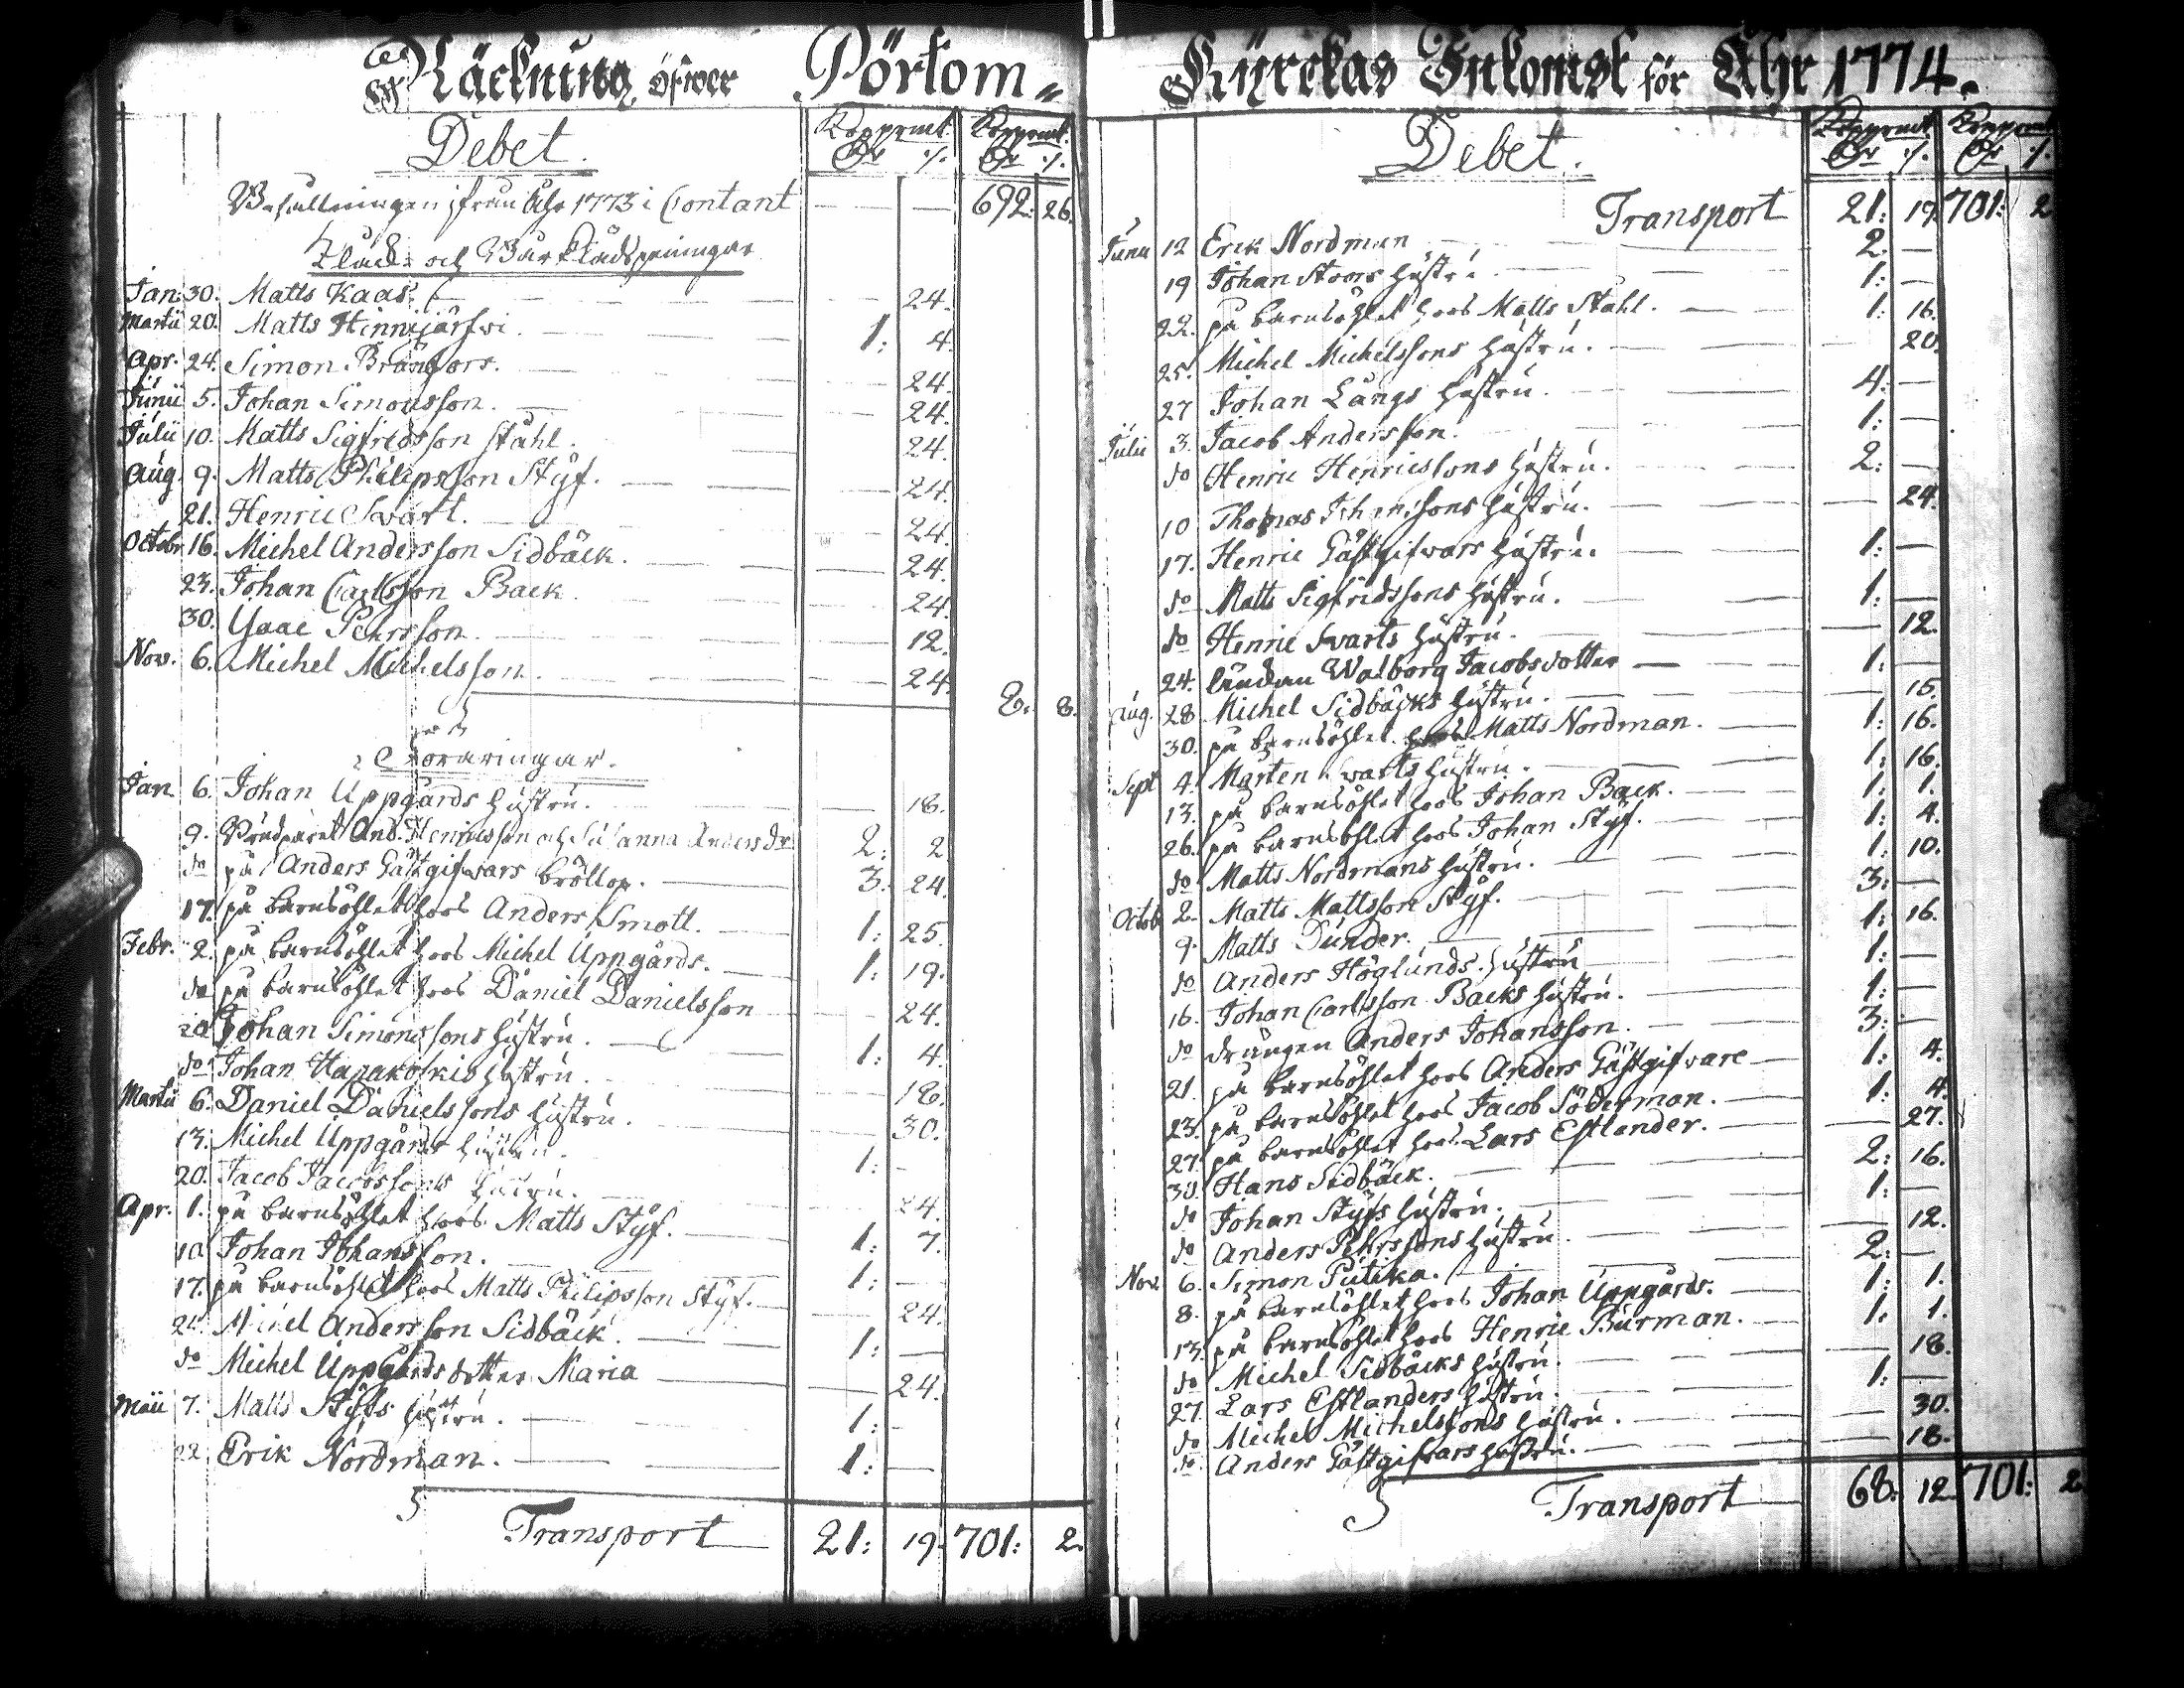 Räckning öfwer Pörtom
Debet.
Koppmt. Koppmt.
Dr ./. Dr ./.
Behållningen ifrån Åhr 1773 i Contant — — 692: 26.
Klåck- och Bårklädspeningar
Jan: 30. Matts Kaas. — 24.
Martii 20. Matts Hinnijärfwi. — 1: 4.
Apr. 24. Simon Brånfors. — 24.
Junii 5. Johan Simonsson. — 24.
Julii 10. Matts Sigfredsson Ståhl. — 24.
Aug. 9. Matts Philipsson Styf. — 24.
21. Henric Svart. — 24.
Octobr. 16. Michel Andersson Sidbäck. — 24.
23. Johan Carlsson Back. — 24.
30. Isaac Pehrsson. — 12.
Nov. 6. Michel Michelsson. — 24.
8. 8.
Foräringar.
Jan. 6. Johan Uppgårds hustru. — 18.
9. Brudparet And. Henricsson och Susanna Andersdr 2: 2
do på Anders Gästgifvars bröllop. — 3: 24.
17. på barnsöhlet hoos Anders Smoll. — 1: 25.
Febr. 2. på barnsöhlet hoos Michel Uppgårds. — 1: 19.
do på barnsöhlet hoos Daniel Danielsson 24.
20 Johan Simonssons hustru. — 1: 4.
do Johan Hapakoskis hustru. — 18.
Martii 6. Daniel Danielssons hustru. — 30.
13. Michel Uppgårds hustru. 1: -
20. Jacob Jacobssons hustru. — 24.
Apr. 1. på barnsöhlet hoos Matts Styf. — 1: 7.
10 Johan Johansson. — 1: —
17. på barnsöhlet hoos Matts Philipsson Styf. — 24.
24. Michel Andersson Sidbäck. — 1: —
do Michel Uppgårds dotter Maria — 24.
Maii 7. Matts Styfs hustru. — 1: -
22. Erik Nordman. — 1: —
Transport 21: 19. 701: 2.
Kÿrckas Inkomst för Åhr 1774.
Debet.
Koppmt Koppmt
Dr ./. Dr ./.
Transport 21: 19. 701: 2
Junii 12 Erik Nordman — 2. —
19 Johan Stoors hustru — 1: —
22. på barnsöhlet hoos Matts Ståhl. — 1: 16.
25. Michel Michelssons hustru. — 20.
27 Johan Långs hustru. — 4: —
Julii 3. Jacob Andersson. — 1: —
do Henric Henricssons hustru. — 2: —
10 Thomas Johanssons hustru. — 24.
17. Henric Gästgifvars hustru. — 1: —
do Matts Sigfridssons hustru. — 1: —
do Henric Svarts hustru. — 12.
24. änckan Walborg Jacobsdotter — 1: —
Aug. 28 Michel Sidbäcks hustru. — 15.
30. på barnsöhlet hoos Matts Nordman. — 1: 16.
Sept 4. Mårten Svarts hustru. — 1: 16.
13. på barnsöhlet hoos Johan Back. — 1: 1.
26. på barnsöhlet hoos Johan Styf. — 1: 4.
do Matts Nordmans hustru. — 1: 10.
Octob 2. Matts Mattsson Styf. — 3: —
9. Matts Dunder. — 1: 16.
do Anders Höglunds hustru — 1: —
16. Johan Carlsson Backs hustru. — 1: —
do drängen Anders Johansson. — 3: —
21. på barnsöhlet hoos Anders Gästgifvare — 1: 4.
23. på barnsöhlet hoos Jacob Söderman. — 1: 4.
27. på barnsöhlet hoos Lars Estlander. — 27.
30. Hans Sidbäck. — 2: 16.
do Johan Styfs hustru. — 1: —
do Anders Pehrssons hustru. — 12.
Nov. 6. Simon Putika. — 2: —
8. på barnsöhlet hoos Johan Uppgårds. — 1: 1.
13. på barnsöhlet hoos Henric Burman. — 1. 1.
do Michel Sidbäcks hustru. — 18.
27. Lars Estlanders hustru. — 1: —
do Michel Michelssons hustru. — 30.
do Anders Gästgifvars hustru. — 18.
Transport 68: 12. 701: 2.